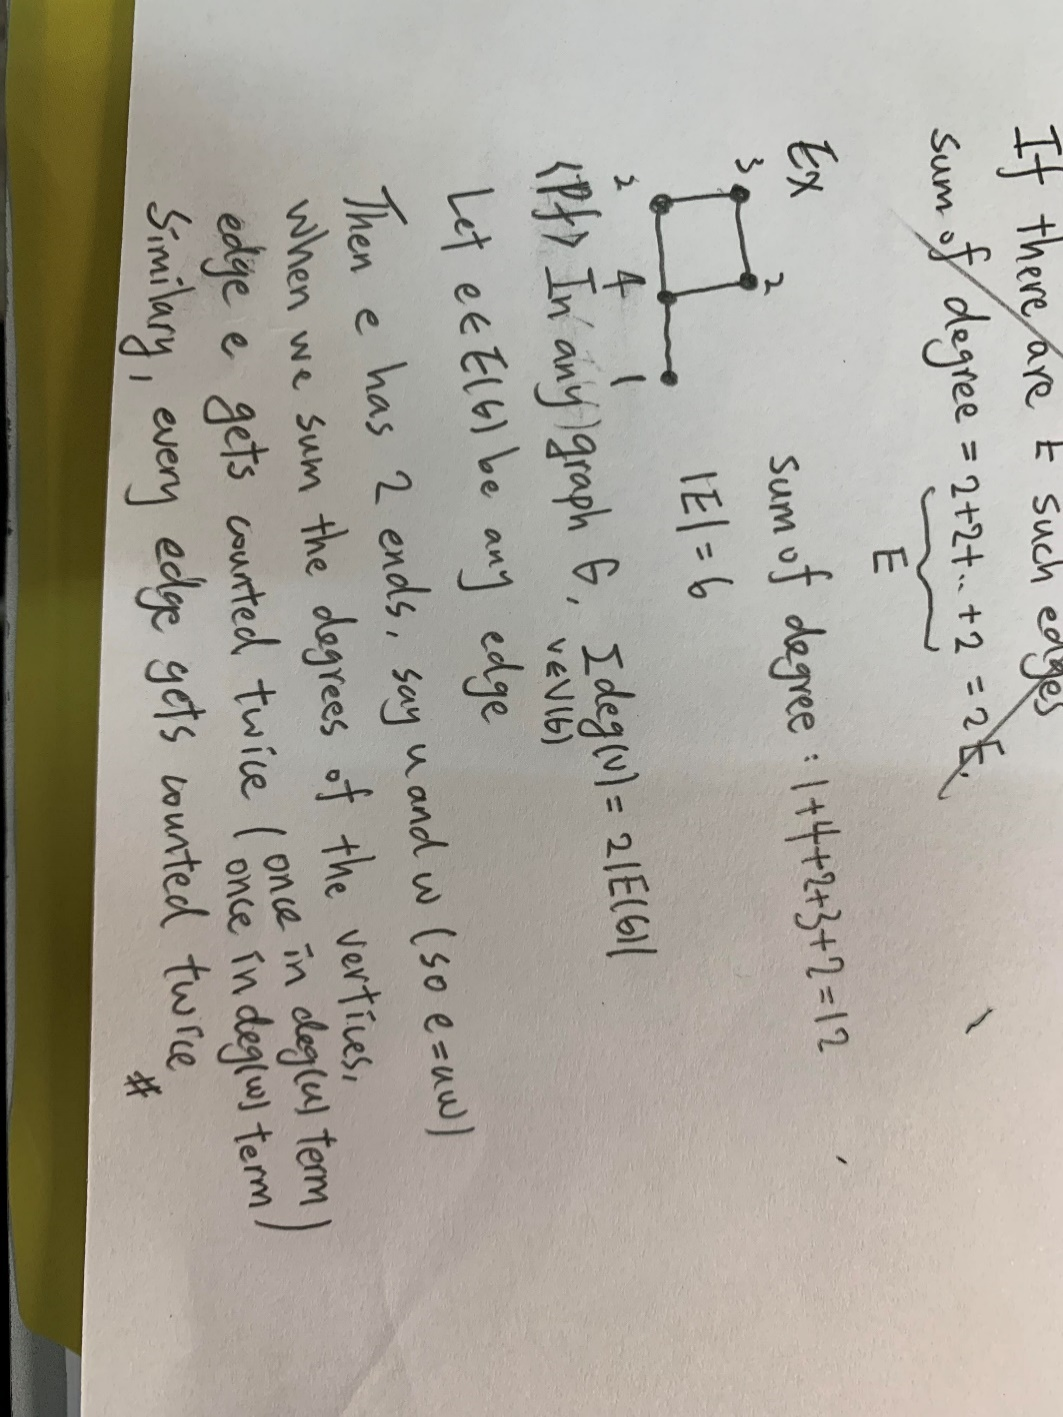 If there are t such edges
sum of degree = 2+2+..+2 = 2E.
E
Ex
3 2
2 4 1
sum of degree : 1+4+2+3+2=12
|E| = 6
<Pf> In any graph G, Σdeg(v) = 2|E(G)|
v∈V(G)
Let e∈E(G) be any edge
Then e has 2 ends, say u and w (so e=uw)
when we sum the degrees of the vertices,
edge e gets counted twice (once in deg(u) term)
(once in deg(w) term)
Similary, every edge gets counted twice
#